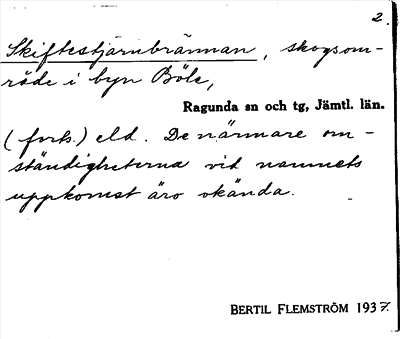 2.
Skiftestjärnbrännan, skogsom-
råde i byn Böle,
Ragunda sn och tg, Jämtl. län.
(forts.) eld. De närmare om-
ständigheterna vid namnets
uppkomst äro okända.
BERTIL FLEMSTRÖM 1937.